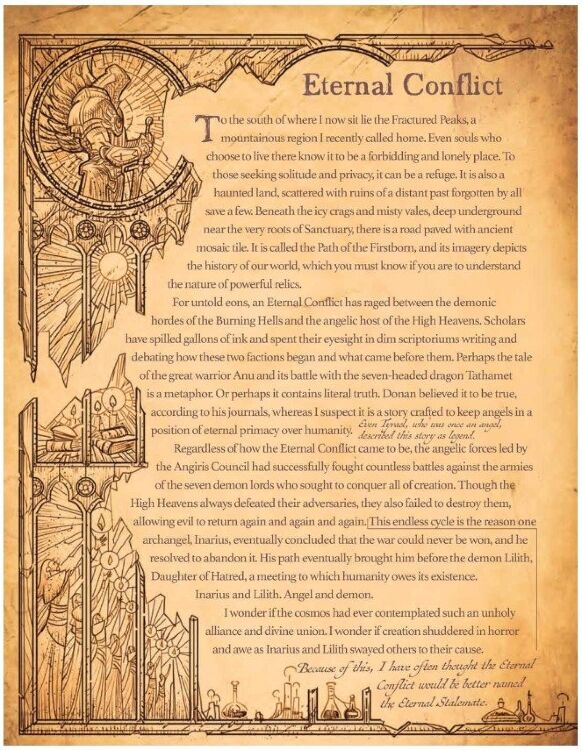 Eternal Conflict
To the south of where I now sit lie the Fractured Peaks, a
mountainous region I recently called home. Even souls who
choose to live there know it to be a forbidding and lonely place. To
those seeking solitude and privacy, it can be a refuge. It is also a
haunted land, scattered with ruins of a distant past forgotten by all
save a few. Beneath the icy crags and misty vales, deep underground
near the very roots of Sanctuary, there is a road paved with ancient
mosaic tile. It is called the Path of the Firstborn, and its imagery depicts
the history of our world, which you must know if you are to understand
the nature of powerful relics.
For untold eons, an Eternal Conflict has raged between the demonic
hordes of the Burning Hells and the angelic host of the High Heavens. Scholars
have spilled gallons of ink and spent their eyesight in dim scriptoriums writing and
debating how these two factions began and what came before them. Perhaps the tale
of the great warrior Anu and its battle with the seven-headed dragon Tathamet
is a metaphor. Or perhaps it contains literal truth. Donan believed it to be true,
according to his journals, whereas I suspect it is a story crafted to keep angels in a
position of eternal primacy over humanity. Even Tyrael, who was once an angel,
described this story as legend.
Regardless of how the Eternal Conflict came to be, the angelic forces led by
the Angiris Council had successfully fought countless battles against the armies
of the seven demon lords who sought to conquer all of creation. Though the
High Heavens always defeated their adversaries, they also failed to destroy them,
allowing evil to return again and again and again. This endless cycle is the reason one
archangel, Inarius, eventually concluded that the war could never be won, and he
resolved to abandon it. His path eventually brought him before the demon Lilith,
Daughter of Hatred, a meeting to which humanity owes its existence.
Inarius and Lilith. Angel and demon.
I wonder if the cosmos had ever contemplated such an unholy
alliance and divine union. I wonder if creation shuddered in horror
and awe as Inarius and Lilith swayed others to their cause.
Because of this, I have often thought the Eternal
Conflict would be better named
the Eternal Stalemate.